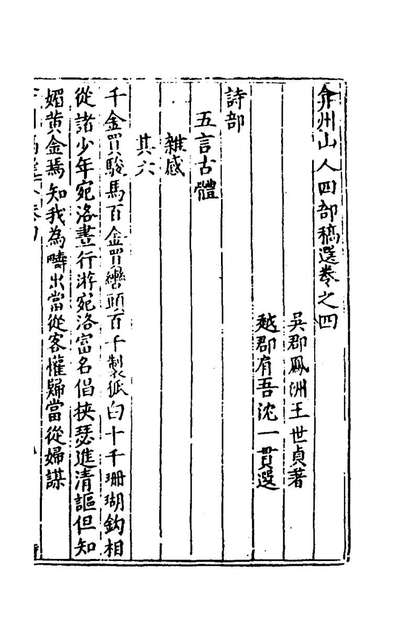 弇州山人四部稿選卷之四
吳郡鳳洲王世貞著
越郡肩吾沈一貫選
詩部
五言古體
雜感
其六
千金買駿馬百金買轡頭百千製狐白十千珊瑚鈎相
從諸少年宛洛晝行游宛洛富名倡挾瑟進清謳但知
媚黄金焉知我為疇出當從客權歸當從婦謀